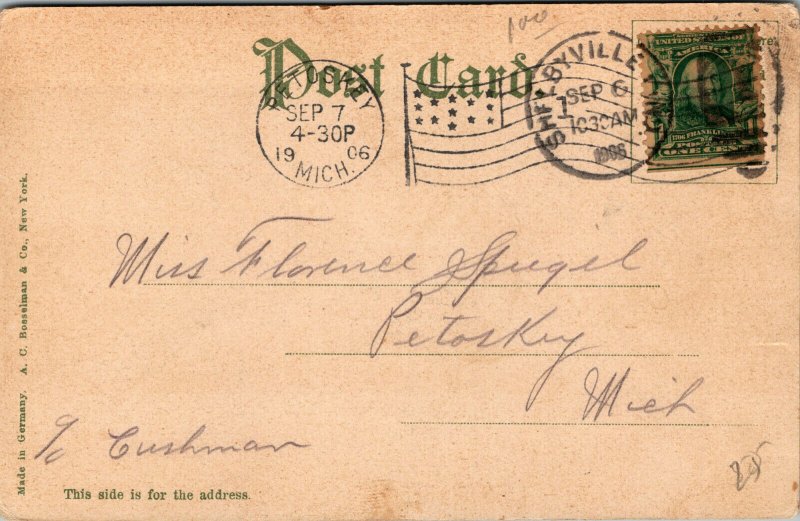 100
Post Card.
PETOSKEY
SEP 7
4-30P
1906
MICH.
SHELBYVILLE
SEP 6
1030AM
1906
UNITED STATES OF
AMERICA
1706 FRANKLIN
POSTAGE
ONE CENT
Miss Florence Spiegel
Petoskey
Mich
c/o Cushman
This side is for the address.
Made in Germany. A. C. Bosselman & Co., New York.